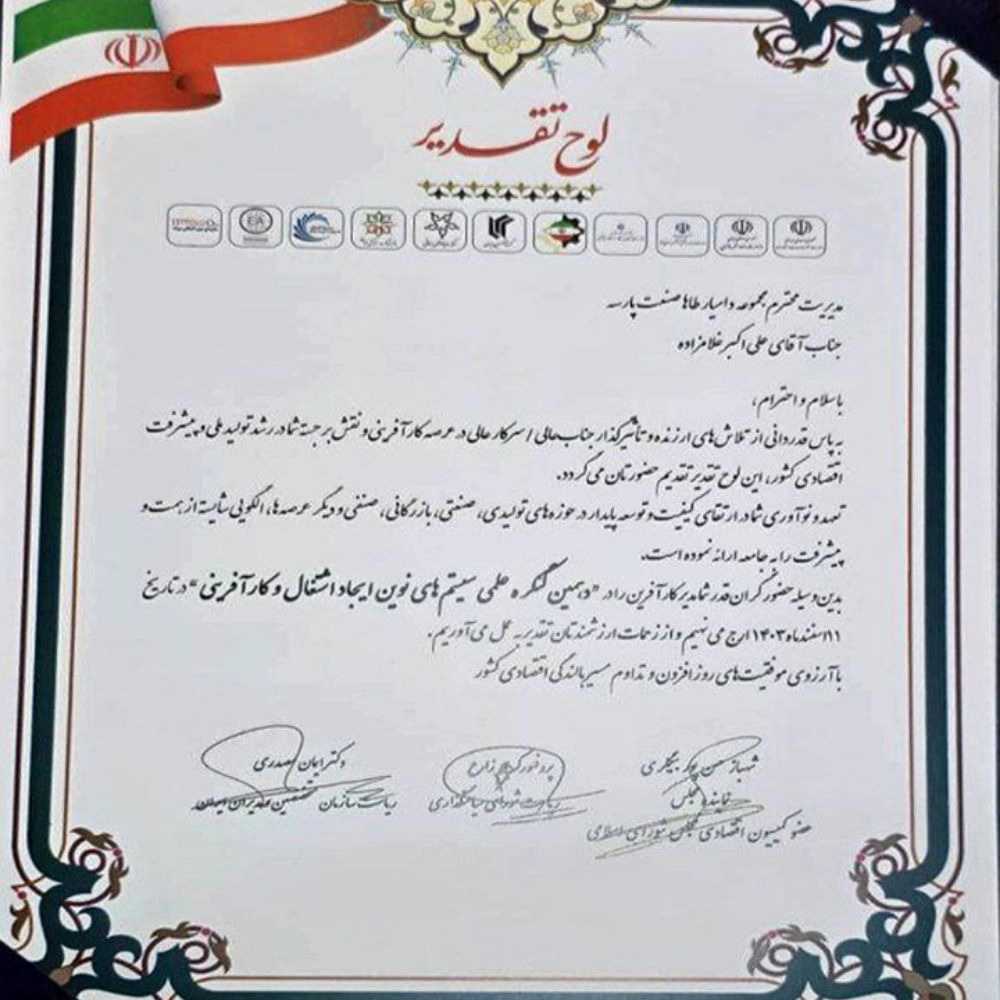 لوح تقدیر
مدیریت محترم مجموعه دامیار طاها صنعت پارسه
جناب آقای علی اکبر غلامزاده
با سلام و احترام،
به پاس قدردانی از تلاش های ارزنده و تأثیرگذار جناب عالی / سرکار عالی در عرصه کارآفرینی و نقش برجسته شما در رشد تولید ملی و پیشرفت
اقتصادی کشور، این لوح تقدیر تقدیم حضورتان می گردد.
تعهد و نوآوری شما در ارتقای کیفیت و توسعه پایدار در حوزه های تولیدی، صنعتی، بازرگانی، صنفی و دیگر عرصه ها، الگویی شایسته از همت و
پیشرفت را به جامعه ارائه نموده است.
بدین وسیله حضور گران قدر شما مدیر کارآفرین را در "دهمین کنگره علمی سیستم های نوین ایجاد اشتغال و کارآفرینی" در تاریخ
۱۱ اسفند ماه ۱۴۰۳ ارج می نهیم و از زحمات ارزشمندتان تقدیر به عمل می آوریم.
با آرزوی موفقیت های روزافزون و تداوم مسیر بالندگی اقتصادی کشور
شهباز حسن پور بیگلری
نماینده مجلس
عضو کمیسیون اقتصادی مجلس شورای اسلامی
پروفسور زارع
ریاست شورای سیاستگذاری
دکتر ایمان صدری
ریاست سازمان متخصصین و مدیران ایران